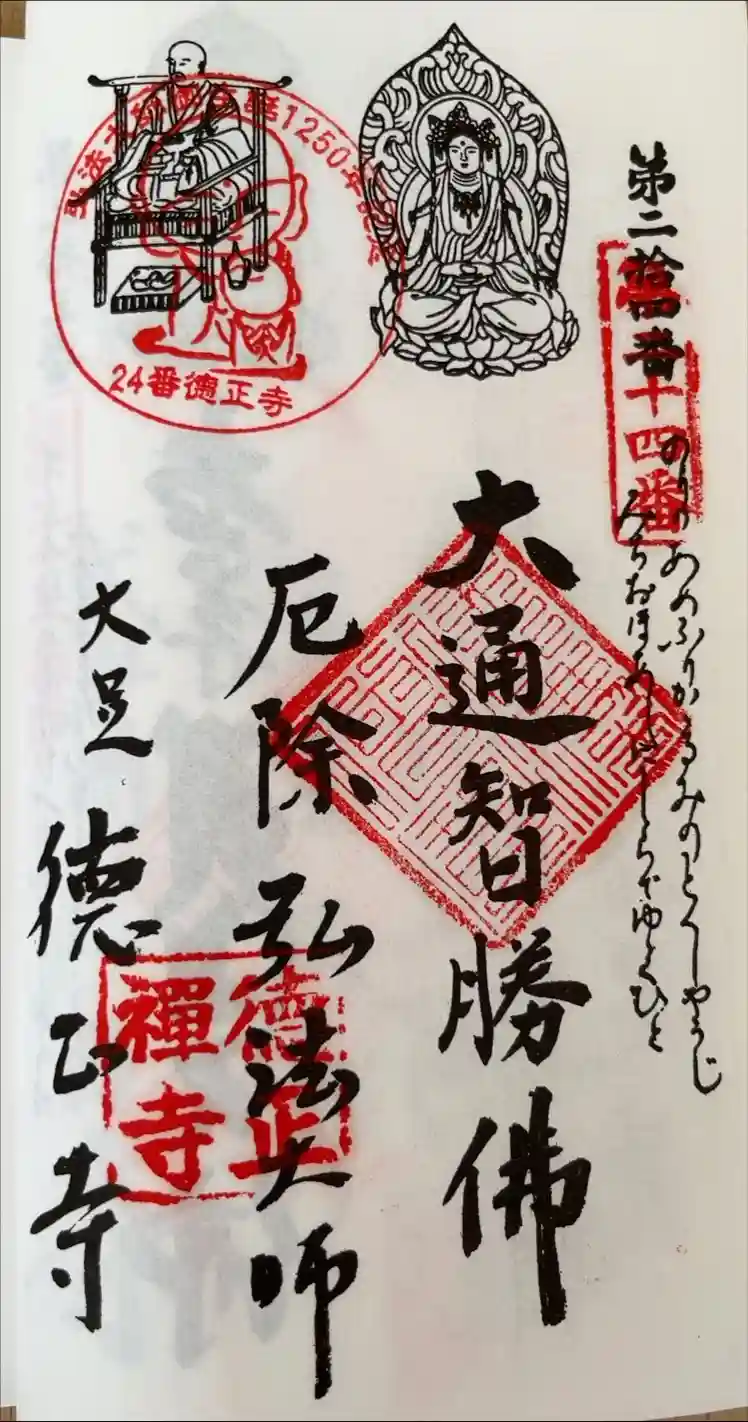 第二拾四番
第二十四番
のりのあめふりかゝるみのとくしやうじ
みちおほあしにしらでゆくひと
大通智勝佛
厄除弘法大師
大足徳正寺
弘法大師御生誕1250年記念
24番徳正寺
徳正
禪寺